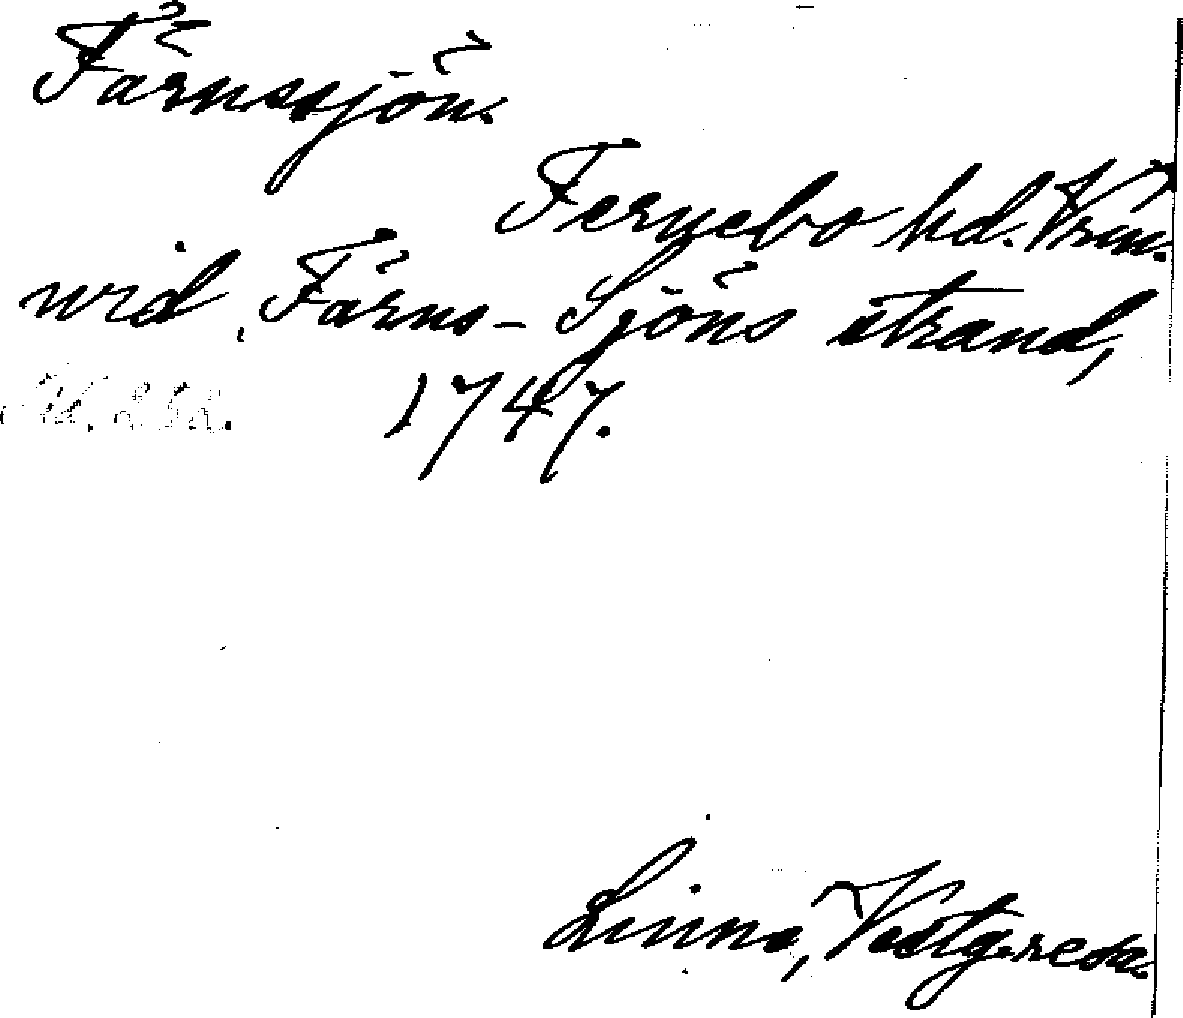 Färnssjön.
Fernebo hd. Vrm.
wid Färns-Sjöns strand,
1747.
Linné, Västg. resa.